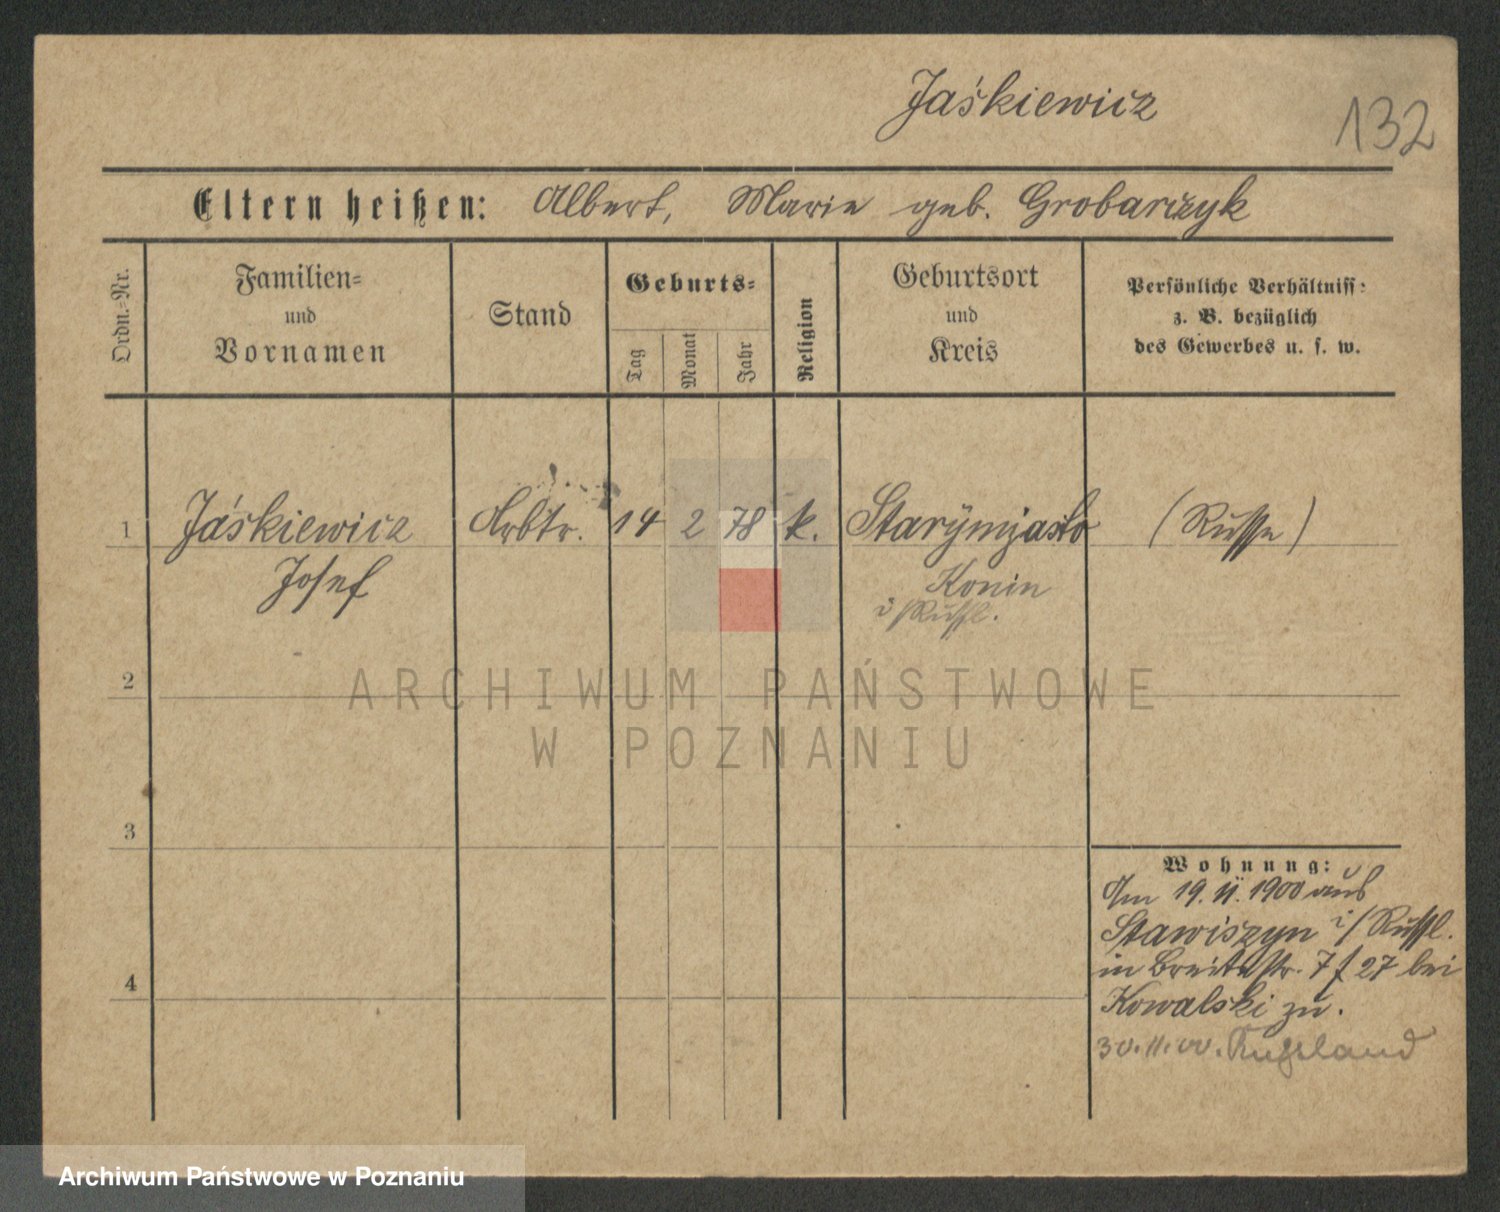 Jaśkiewicz
132
Eltern heißen: Albert, Marie geb. Grobarczyk
Ordn.-Nr.
Familien-
und
Vornamen
Stand
Geburts-
Tag
Monat
Jahr
Religion
Geburtsort
und
Kreis
Persönliche Verhältniss:
z. B. bezüglich
des Gewerbes u. s. w.
1 Jaśkiewicz Arbtr. 14 2 78 k. Starymiasto (Russe)
Josef Konin
i/Russl.
2
ARCHIWUM PAŃSTWOWE
W POZNANIU
3
Wohnung:
Am 19. 11. 1900 aus
Stawiszyn i/Russl.
in Breitestr. 7 f 27 bei
4
Kowalski zu.
30.11.00. Rußland
Archiwum Państwowe w Poznaniu